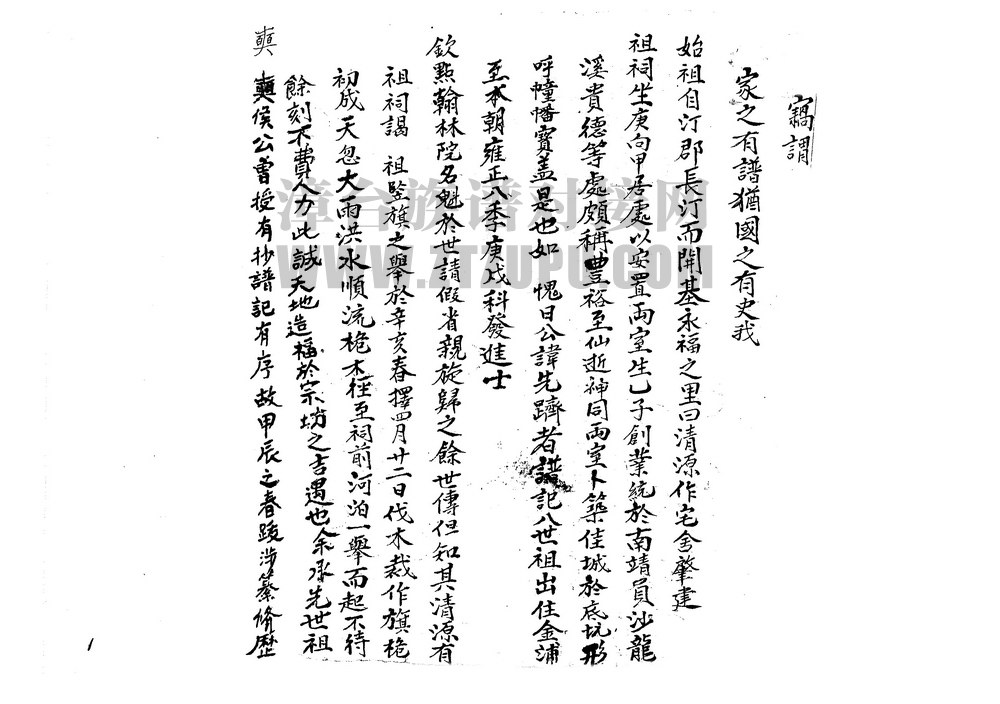 竊謂
家之有譜猶國之有史我
始祖自汀郡長汀而開基永福之里曰清源作宅舍肇建
祖祠坐庚向甲居處以安置両室生乙子創業統於南靖員沙龍
溪貴德等處頗稱豊裕至仙逝神同両室卜築佳城於底坑形
呼幢幡寶盖是也如 愧日公諱先躋者譜記八世祖出住金浦
至本朝雍正八季庚戌科發進士
欽點翰林院名魁於世請假省親旋歸之餘世傳但知其清源有
祖祠謁 祖竪旗之舉於辛亥春擇四月廿二日伐木裁作旗桅
初成天忽大雨洪水順流桅木徑至祠前河泊一舉而起不待
餘刻不費人力此誠天地造福於宗坊之吉遇也余承先世祖
奭侯公曽授有抄譜記有序故甲辰之春跋涉纂脩歷
奭
漳台族谱对接网
WWW.ZTZUPU.COM
1